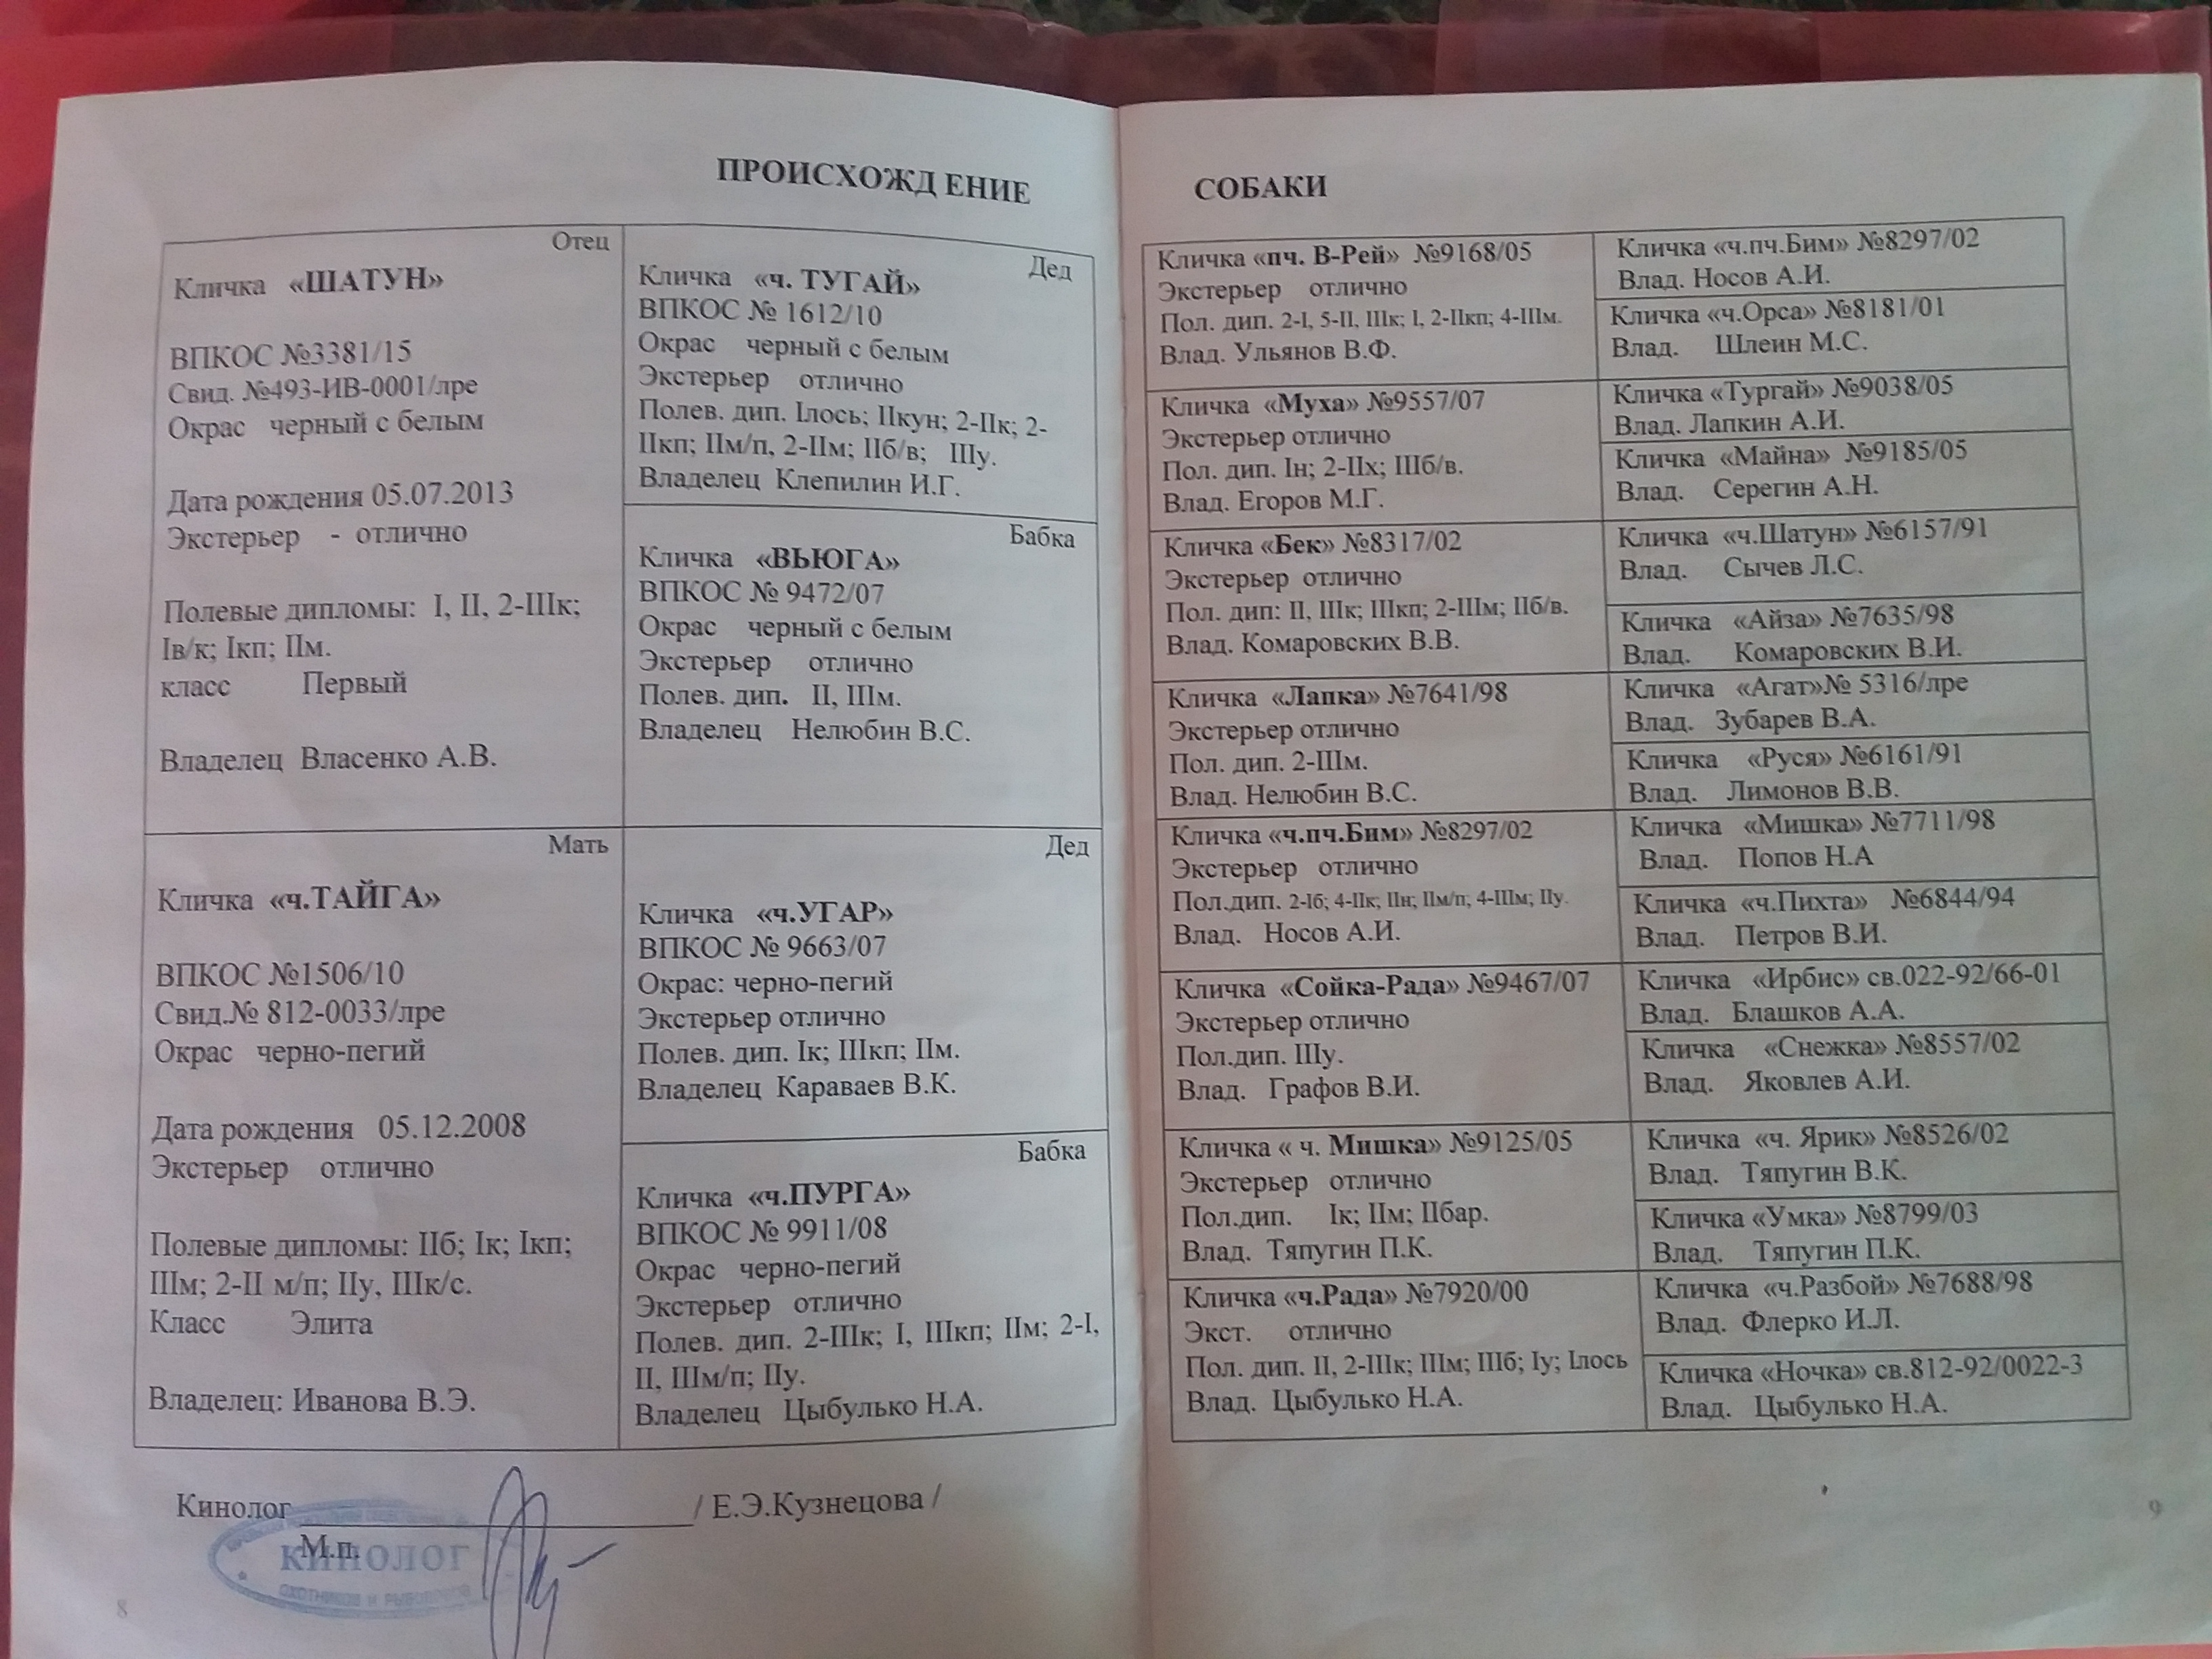 ПРОИСХОЖД ЕНИЕ
Отец
Кличка «ШАТУН»
ВПКОС №3381/15
Свид. №493-ИВ-0001/лре
Окрас черный с белым
Дата рождения 05.07.2013
Экстерьер - отлично
Полевые дипломы: I, II, 2-IIIк;
Iв/к; Iкп; IIм.
класс Первый
Владелец Власенко А.В.
Дед
Кличка «ч. ТУГАЙ»
ВПКОС № 1612/10
Окрас черный с белым
Экстерьер отлично
Полев. дип. Iлось; IIкун; 2-IIк; 2-
IIкп; IIм/п, 2-IIм; IIб/в; IIIу.
Владелец Клепилин И.Г.
Бабка
Кличка «ВЬЮГА»
ВПКОС № 9472/07
Окрас черный с белым
Экстерьер отлично
Полев. дип. II, IIIм.
Владелец Нелюбин В.С.
Мать
Кличка «ч.ТАЙГА»
ВПКОС №1506/10
Свид.№ 812-0033/лре
Окрас черно-пегий
Дата рождения 05.12.2008
Экстерьер отлично
Полевые дипломы: IIб; Iк; Iкп;
IIIм; 2-II м/п; IIу, IIIк/с.
Класс Элита
Владелец: Иванова В.Э.
Дед
Кличка «ч.УГАР»
ВПКОС № 9663/07
Окрас: черно-пегий
Экстерьер отлично
Полев. дип. Iк; IIIкп; IIм.
Владелец Караваев В.К.
Бабка
Кличка «ч.ПУРГА»
ВПКОС № 9911/08
Окрас черно-пегий
Экстерьер отлично
Полев. дип. 2-IIIк; I, IIIкп; IIм; 2-I,
II, IIIм/п; IIу.
Владелец Цыбулько Н.А.
Кинолог / Е.Э.Кузнецова /
М.п.
КИНОЛОГ
ОХОТНИКОВ И РЫБОЛОВОВ
8
СОБАКИ
Кличка «пч. В-Рей» №9168/05
Экстерьер отлично
Пол. дип. 2-I, 5-II, IIIк; I, 2-IIкп; 4-IIIм.
Влад. Ульянов В.Ф.
Кличка «ч.пч.Бим» №8297/02
Влад. Носов А.И.
Кличка «ч.Орса» №8181/01
Влад. Шлеин М.С.
Кличка «Муха» №9557/07
Экстерьер отлично
Пол. дип. Iн; 2-IIх; IIIб/в.
Влад. Егоров М.Г.
Кличка «Тургай» №9038/05
Влад. Лапкин А.И.
Кличка «Майна» №9185/05
Влад. Серегин А.Н.
Кличка «Бек» №8317/02
Экстерьер отлично
Пол. дип: II, IIIк; IIIкп; 2-IIIм; IIб/в.
Влад. Комаровских В.В.
Кличка «ч.Шатун» №6157/91
Влад. Сычев Л.С.
Кличка «Айза» №7635/98
Влад. Комаровских В.И.
Кличка «Лапка» №7641/98
Экстерьер отлично
Пол. дип. 2-IIIм.
Влад. Нелюбин В.С.
Кличка «Агат»№ 5316/лре
Влад. Зубарев В.А.
Кличка «Руся» №6161/91
Влад. Лимонов В.В.
Кличка «ч.пч.Бим» №8297/02
Экстерьер отлично
Пол.дип. 2-Iб; 4-IIк; IIн; IIм/п; 4-IIIм; IIу.
Влад. Носов А.И.
Кличка «Мишка» №7711/98
Влад. Попов Н.А
Кличка «ч.Пихта» №6844/94
Влад. Петров В.И.
Кличка «Сойка-Рада» №9467/07
Экстерьер отлично
Пол.дип. IIIу.
Влад. Графов В.И.
Кличка «Ирбис» св.022-92/66-01
Влад. Блашков А.А.
Кличка «Снежка» №8557/02
Влад. Яковлев А.И.
Кличка « ч. Мишка» №9125/05
Экстерьер отлично
Пол.дип. Iк; IIм; IIбар.
Влад. Тяпугин П.К.
Кличка «ч. Ярик» №8526/02
Влад. Тяпугин В.К.
Кличка «Умка» №8799/03
Влад. Тяпугин П.К.
Кличка «ч.Рада» №7920/00
Экст. отлично
Пол. дип. II, 2-IIIк; IIIм; IIIб; Iу; Iлось
Влад. Цыбулько Н.А.
Кличка «ч.Разбой» №7688/98
Влад. Флерко И.Л.
Кличка «Ночка» св.812-92/0022-3
Влад. Цыбулько Н.А.
9